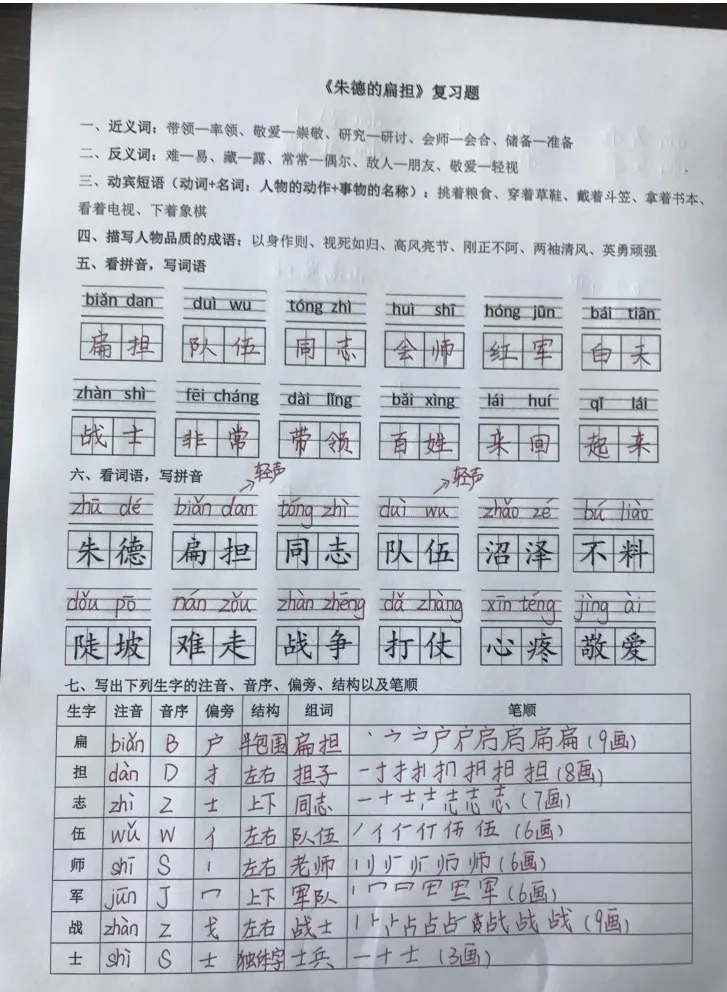 《朱德的扁担》复习题
一、近义词：带领—率领、敬爱—崇敬、研究—研讨、会师—会合、储备—准备
二、反义词：难—易、藏—露、常常—偶尔、敌人—朋友、敬爱—轻视
三、动宾短语（动词+名词：人物的动作+事物的名称）：挑着粮食、穿着草鞋、戴着斗笠、拿着书本、
看着电视、下着象棋
四、描写人物品质的成语：以身作则、视死如归、高风亮节、刚正不阿、两袖清风、英勇顽强
五、看拼音，写词语
biǎn dan duì wu tóng zhì huì shī hóng jūn bái tiān
扁担 队伍 同志 会师 红军 白天
zhàn shì fēi cháng dài lǐng bǎi xìng lái huí qǐ lái
战士 非常 带领 百姓 来回 起来
六、看词语，写拼音 轻声 轻声
zhū dé biǎn dan tóng zhì duì wu zhǎo zé bú liào
朱德 扁担 同志 队伍 沼泽 不料
dǒu pō nán zǒu zhàn zhēng dǎ zhàng xīn téng jìng ài
陡坡 难走 战争 打仗 心疼 敬爱
七、写出下列生字的注音、音序、偏旁、结构以及笔顺
生字 注音 音序 偏旁 结构 组词 笔顺
扁 biǎn B 户 半包围 扁担 (9画)
担 dàn D 扌 左右 担子 (8画)
志 zhì Z 士 上下 同志 (7画)
伍 wǔ W 亻 左右 队伍 (6画)
师 shī S 丨 左右 老师 (6画)
军 jūn J 冖 上下 军队 (6画)
战 zhàn Z 戈 左右 战士 (9画)
士 shì S 士 独体字 士兵 一十士 (3画)